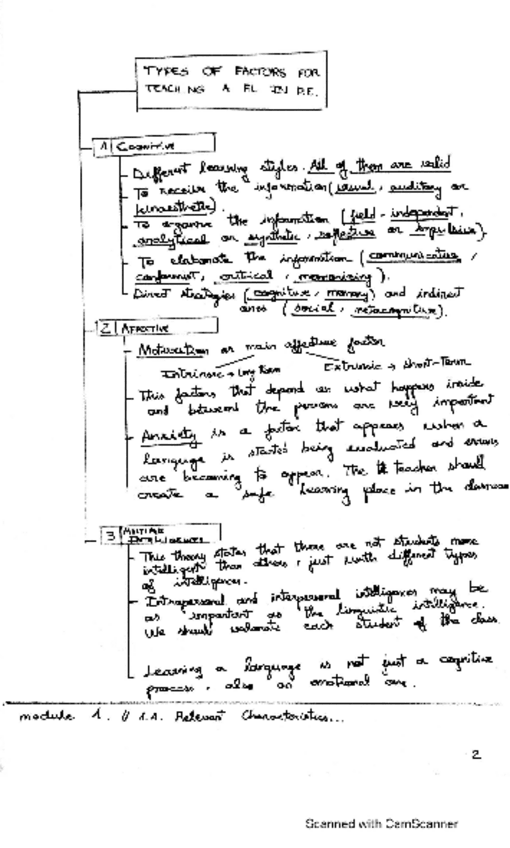 TYPES OF FACTORS FOR
TEACHING A FL IN P.E.
1 COGNITIVE
- Different learning styles. All of them are valid
- To receive the information (visual, auditory or
kinaesthetic).
- To organise the information (field-independent,
analytical or synthetic, reflective or impulsive)
- To elaborate the information (communicative,
conformist, critical, memorising).
- Direct strategies (cognitive, memory) and indirect
ones (social, metacognitive).
2 AFFECTIVE
- Motivation as main affective factor
Intrinsic → long term Extrinsic → short-term
- This factors that depend on what happens inside
and between the persons are very important
- Anxiety is a factor that appears when a
language is started being evaluated and errors
are becoming to appear. The teacher should
create a safe learning place in the classroom
3 MULTIPLE
INTELLIGENCES
- This theory states that there are not students more
intelligent than others, just with different types
of intelligences.
- Intrapersonal and interpersonal intelligences may be
as important as the linguistic intelligence.
We should each student of the class.
- Learning a language is not just a cognitive
process, also an emotional one.
module 1. U 1.1. Relevant Characteristics...
2
Scanned with CamScanner